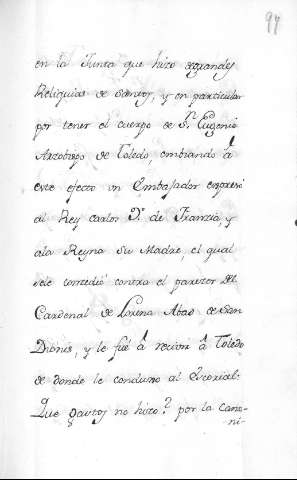 94
en la Junta que hizo degrandes
Reliquias de Santos, y en particular
por tener el cuerpo de Sn. Eugenio
Arzobispo de Toledo, embiando â
este efecto un Embajador expreso
al Rey Carlos 9º. de Francia, y
ala Reyna su Madre, el qual
sele concedió contra el parezer del
Cardenal de Lorena Abad de San
Dionis, y le fué â recivir â Toledo
de donde le conduxo al Escorial.
Que gastos no hizo? por la Cano-
ni-